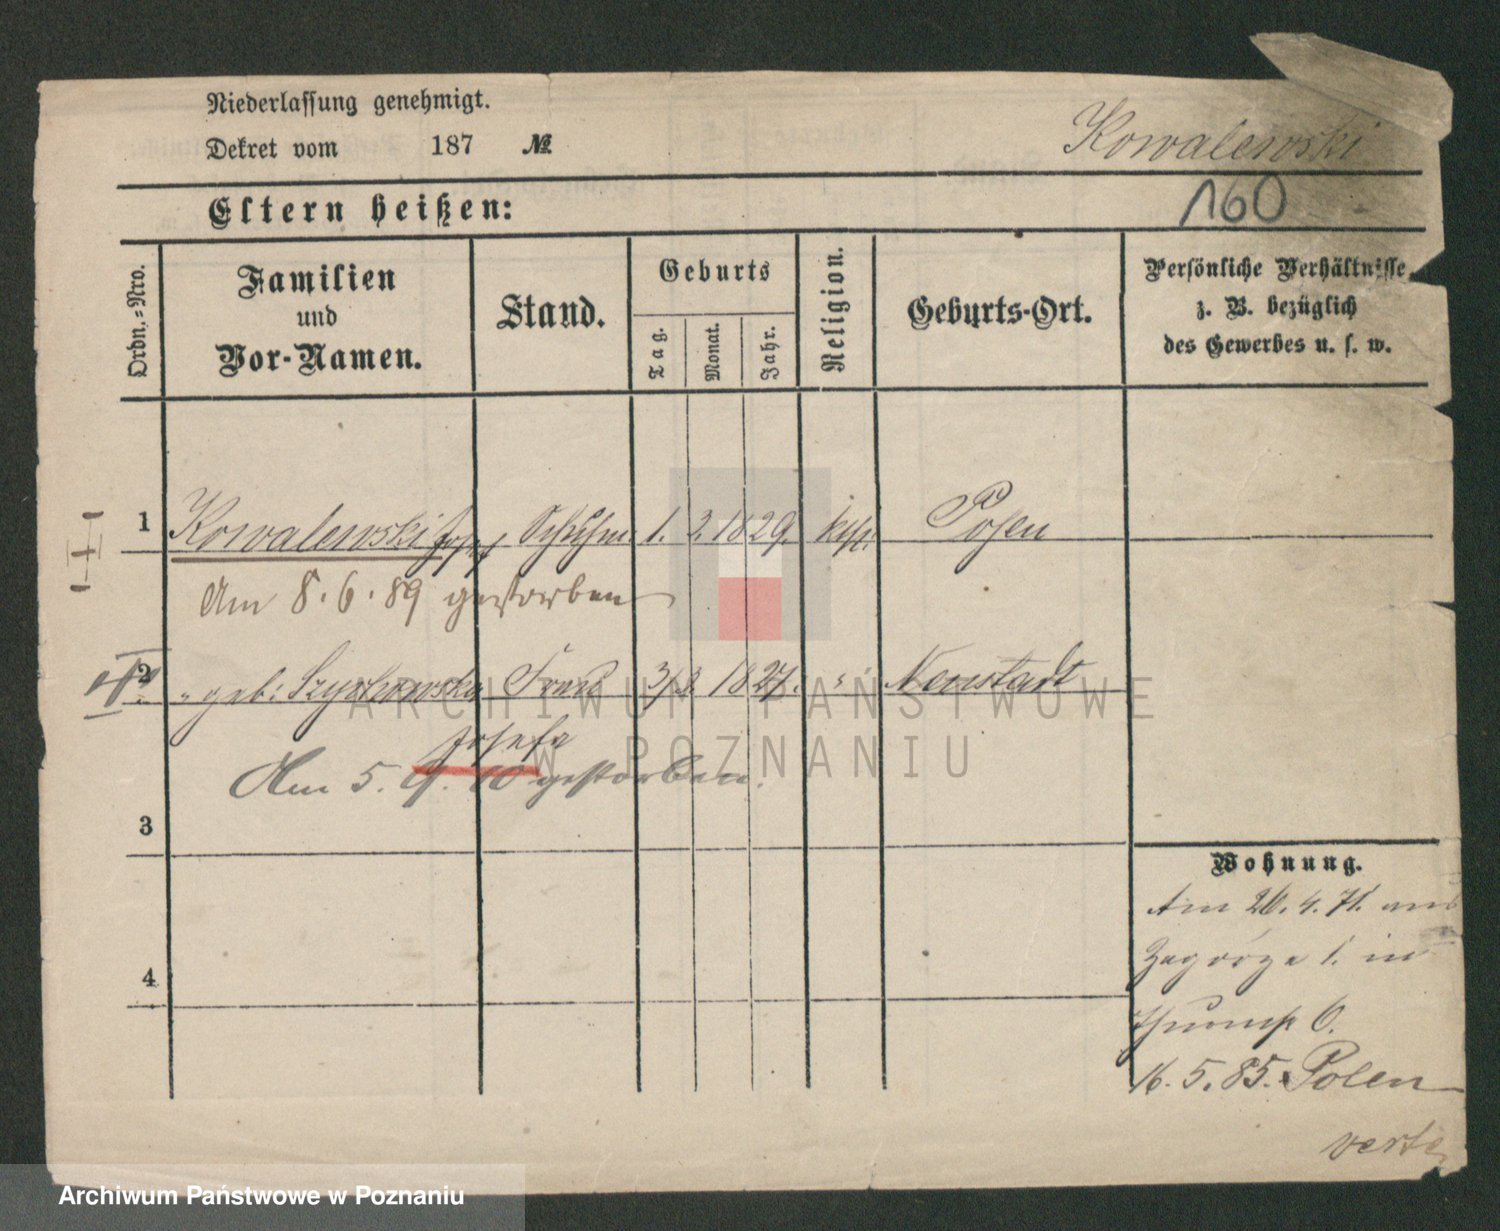 Niederlassung genehmigt.
Dekret vom 187 №
Kowalewski
160
Eltern heißen:
Ordn.-Nro.
Familien
und
Vor-Namen.
Stand.
Geburts
Tag.
Monat.
Jahr.
Religion.
Geburts-Ort.
Persönliche Verhältnisse
z. B. bezüglich
des Gewerbes u. s. w.
1 Kowalewski Josef Schuhm. 1. 3. 1829. kath. Posen
Am 8.6.89 gestorben
2 " geb: Frau 3. 1827. " Neustadt
Josefa
Am 5. 9. 00 gestorben.
3
4
Wohnung.
Am 26.4.71. aus
Zagórze 1. in
6.
16.5.85. Polen
verte
ARCHIWUM PAŃSTWOWE
W POZNANIU
Archiwum Państwowe w Poznaniu